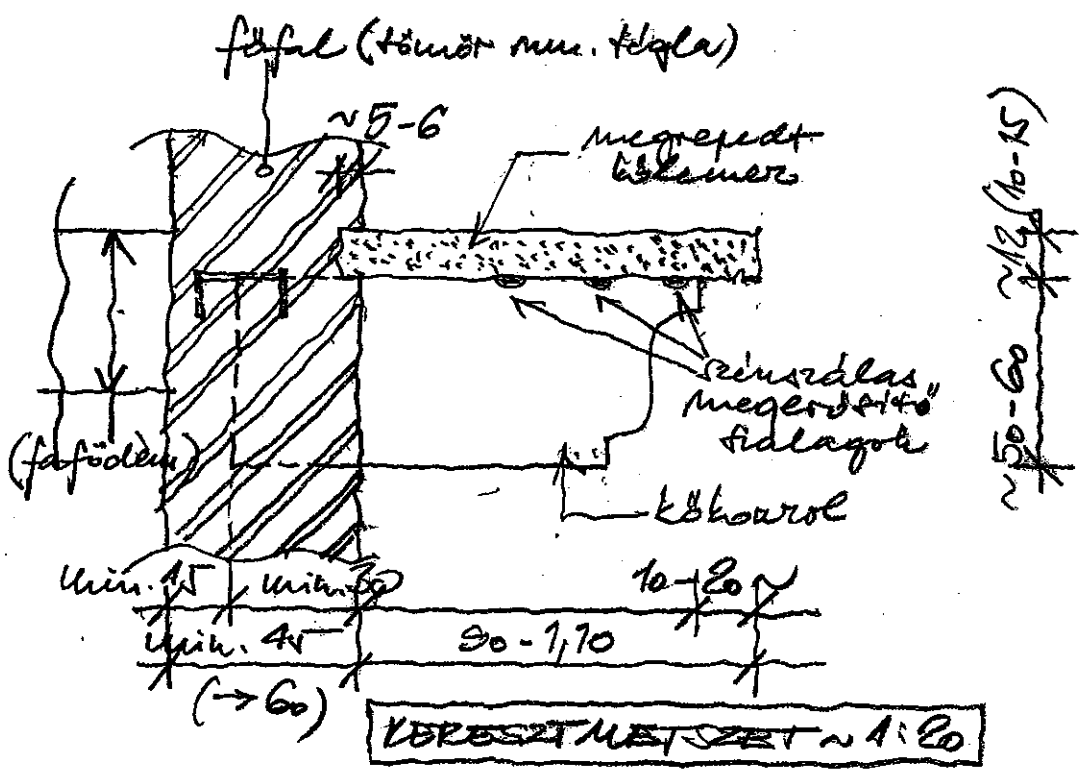 főfal (tömör nm. tégla)
~5-6
megrepedt
kőlemez
~12 (10-15)
szénszálas
megerősítő
szalagok
~50-60
(fafödém)
kőkonzol
min. 15
min. 30
10-20
min. 45
90-1,10
(→60)
KERESZTMETSZET ~ 1:20